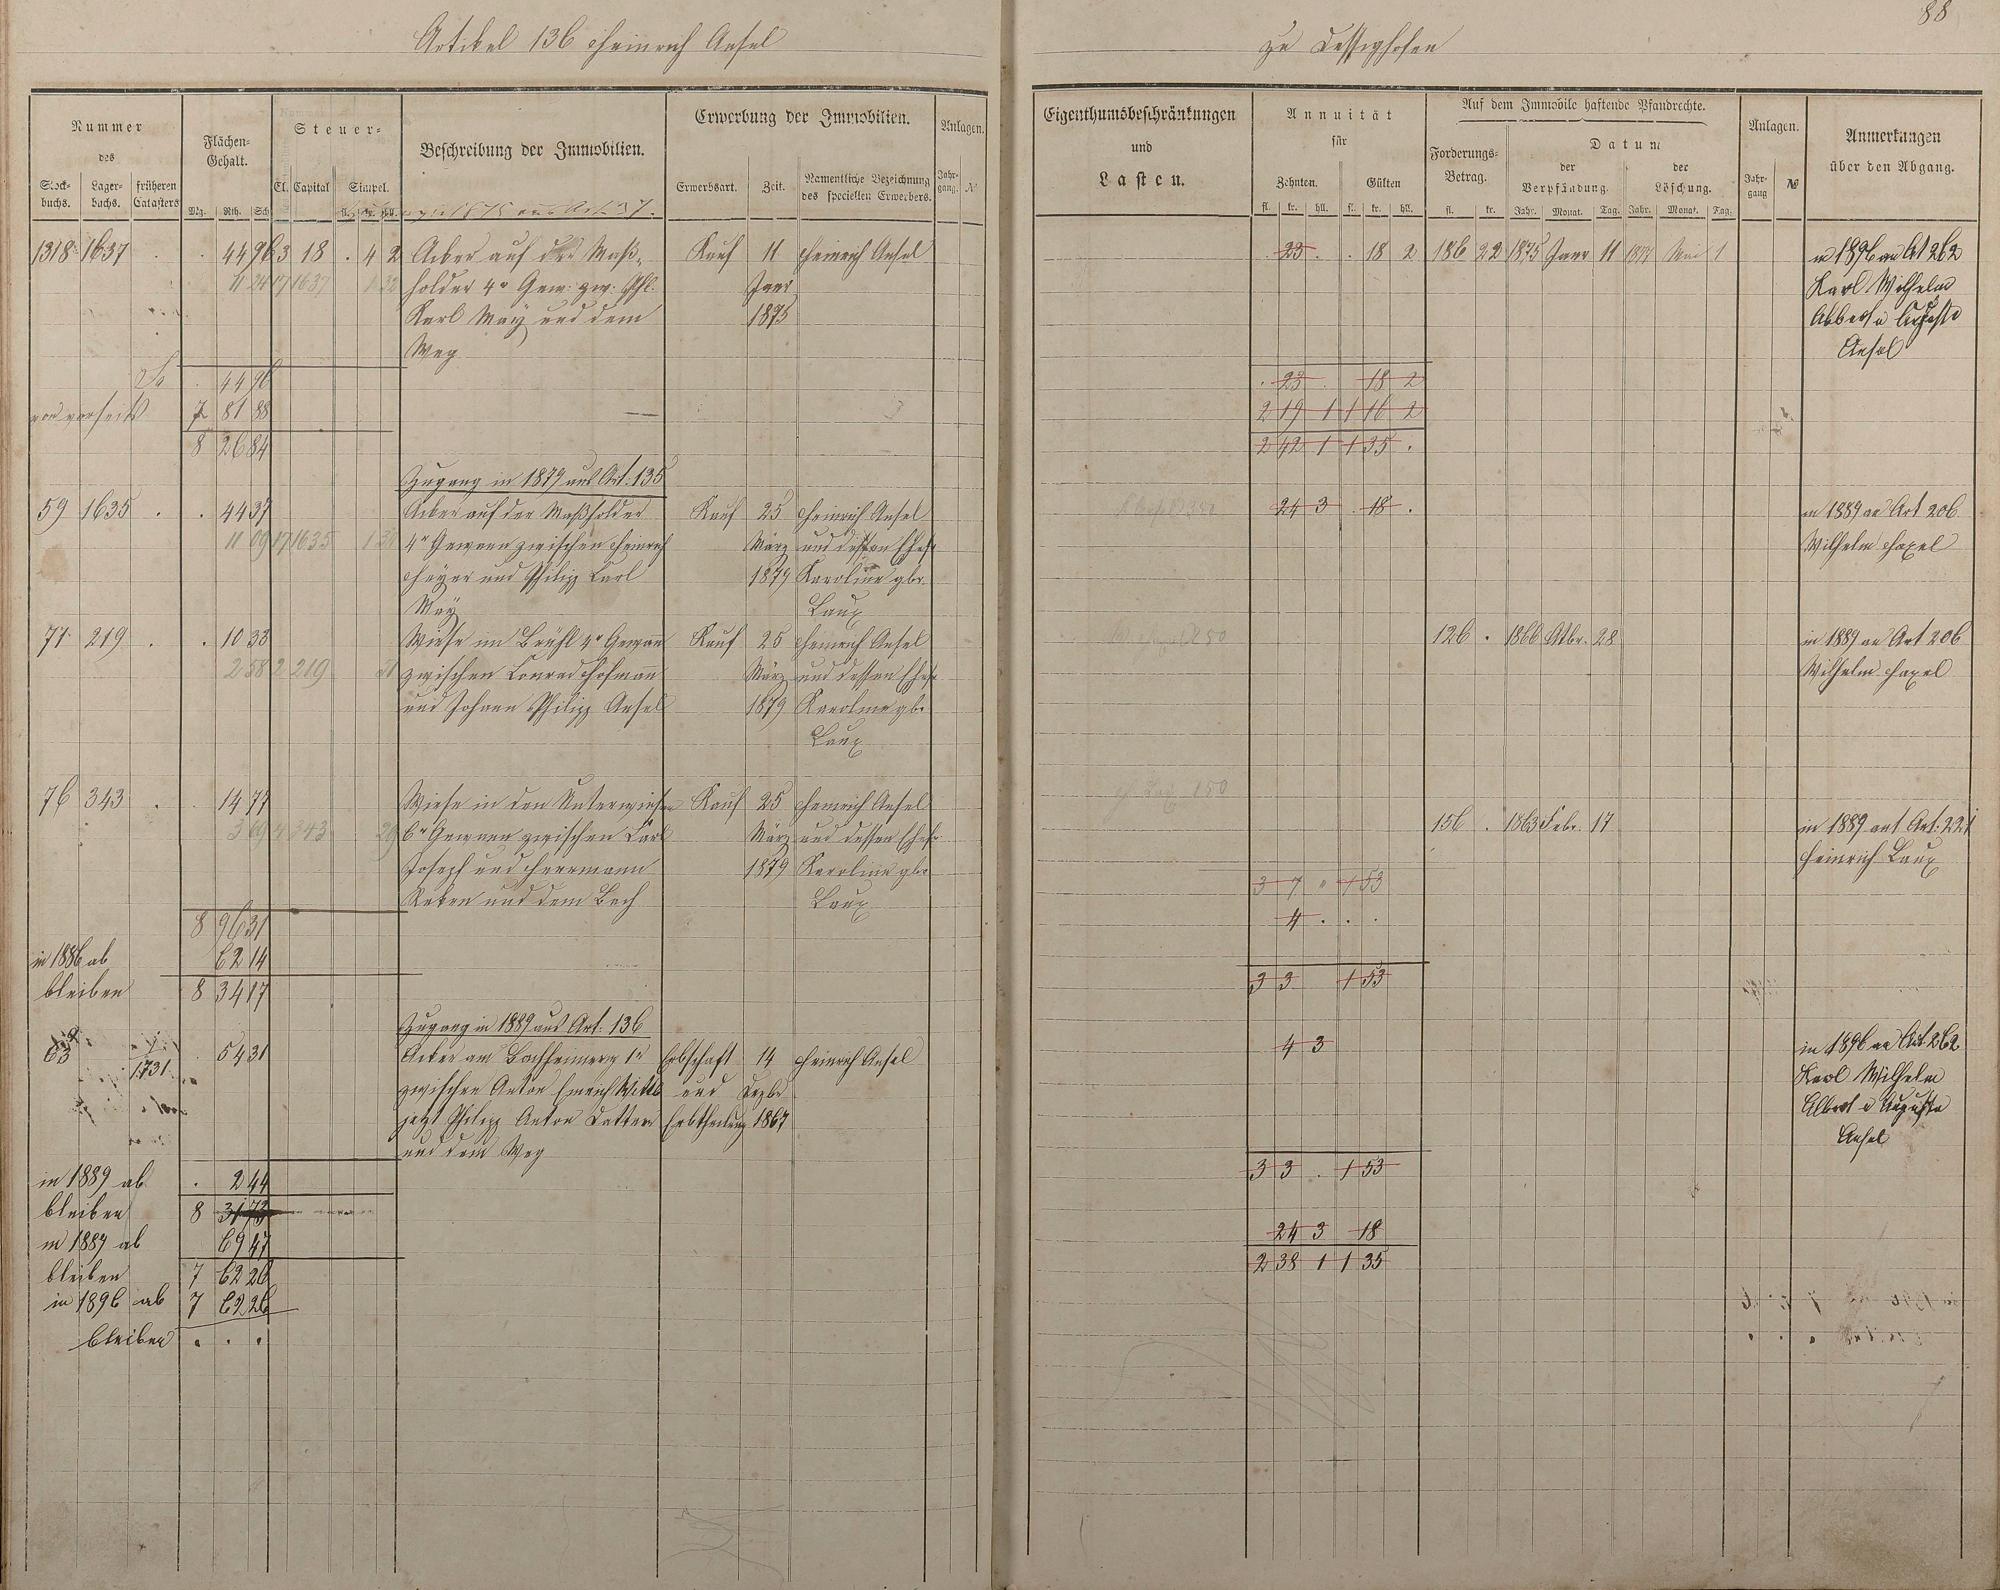 88
Artikel 136 Heinrich Ansel
zu
Nummer
des
Stock-
buchs.
Lager-
buchs.
früheren
Catasters
Flächen-
Gehalt.
Mg. Rth. Sch.
Steuer-
Cl. Capital Simpel.
Beschreibung der Immobilien.
Erwerbung der Immobilien.
Erwerbsart. Zeit.
Namentliche Bezeichnung
des speciellen Erwerbers.
Anlagen.
Jahr-
gang.
№
Eigenthumsbeschränkungen
und
Lasten.
Annuität
für
Zehnten. Gülten
fl. kr. hll. fl. kr. hll.
Auf dem Immobile haftende Pfandrechte.
Forderungs-
Betrag.
fl. kr.
Datum
der
Verpfändung.
der
Löschung.
Jahr. Monat. Tag. Jahr. Monat. Tag.
Anlagen.
Jahr-
gang
№
Anmerkungen
über den Abgang.
in 1875 aus Art 37.
1318 1637 . . 44 96 3 18 . 4 2 Acker auf der Maß- Kauf 11 Heinrich Ansel
11 24 17 1637 1 32 holder 4r Gew: zw: Phl. Janr
Karl May und dem 1875
Weg
. 23 . . 18 2 186 22 1875 Janr 11 Mai 1 in 1896 an Art 262
Karl Wilhelm
Albert u Auguste
Ansel
. 44 96
. 23 . 18 2
von vorseits 7 81 88
2 19 1 1 16 2
8 26 84
2 42 1 1 35 .
Zugang in 1879 aus Art: 135
59 1635 . . 44 37 Acker auf der Maßholder Kauf 25 Heinrich Ansel
11 09 17 1635 1 4r Gewann zwischen Heinrich März und dessen Ehefr
Heyer und Philipp Carl 1879 Karoline gbr.
May Laux
24 3 . 18 . in 1889 an Art 206
Wilhelm Haxel
77 219 . . 10 33 Wiese im Brühl 4r Gewan Kauf 25 Heinrich Ansel
2 58 2 219 31 zwischen Conrad Hofmann März und dessen Ehefr
und Johann Philipp Ansel 1879 Karoline gbr
Laux
250
126 . 1866 28 in 1889 an Art 206
Wilhelm Haxel
76 343 . . 14 77 Wiese in den Unterwiesen Kauf 25 Heinrich Ansel
3 69 4 343 29 6r Gewann zwischen Carl März und dessen Ehefr
Joseph und Herrmann 1879 Karoline gbr
und dem Bach Laux
150
156 . 1863 Febr. 17 in 1889 auf Art: 221
Heinrich Laux
8 96 31
3 7 " 1 53
4 . . .
in 1886 ab 62 14
bleiben 8 34 17
3 3 1 53
Zugang in 1889 aus Art: 136
63 1731 . 54 31 Acker am 1r Erbschaft 14 Heinrich Ansel
zwischen Anton Emrich Wittb und Dezbr
jetzt Philipp Anton Erbtheilung 1867
und dem Weg
4 3 in 1896 an Art. 262
Karl Wilhelm
Albert u Auguste
Ansel
in 1889 ab . 2 44
3 3 . 1 53
bleiben 8 31 73
in 1889 ab 69 47
24 3 18
bleiben 7 62 26
2 38 1 1 35
in 1896 ab 7 62 26
bleiben . . .